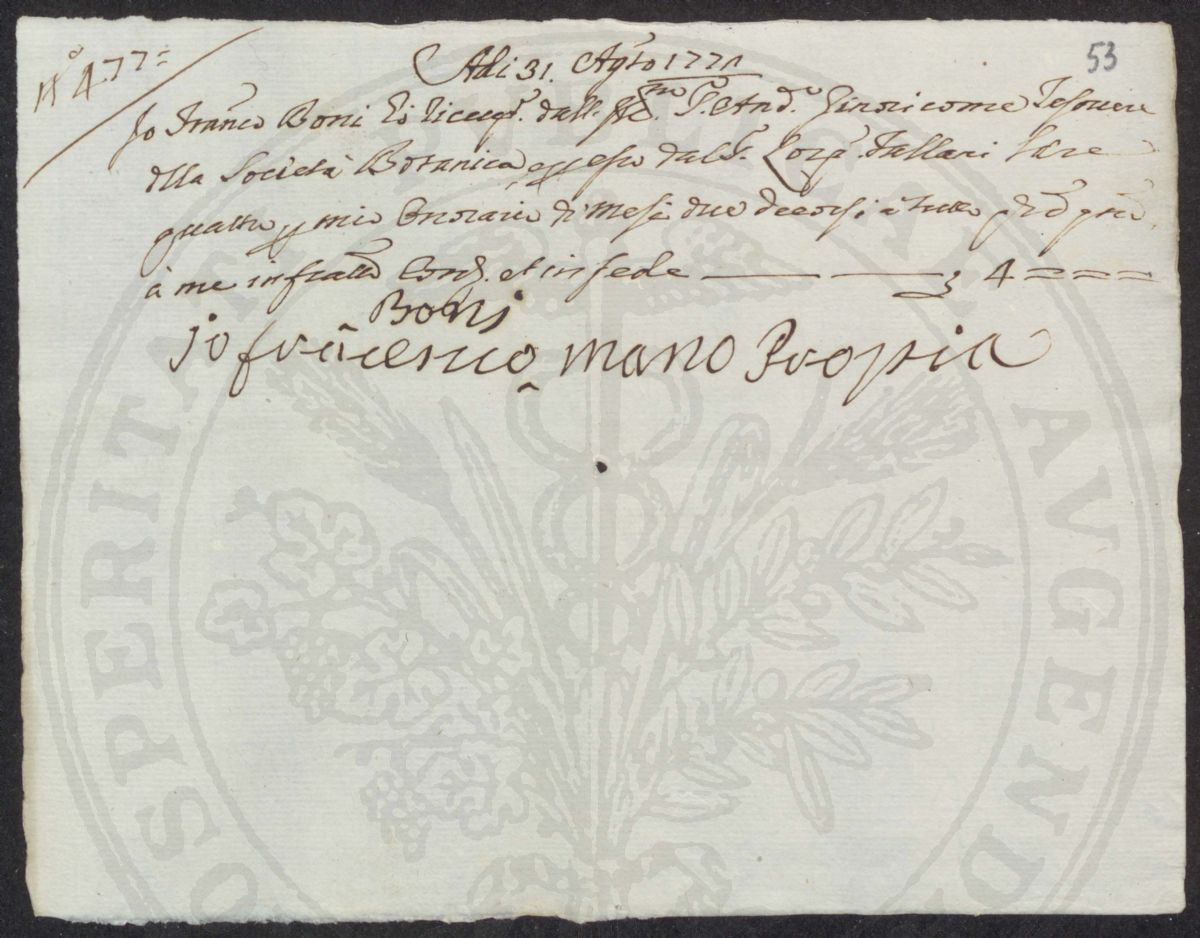 N° 477=
53
Adi 31. Agto 1771
Io Franco Boni hò ricevto. dall. Illmo. Sr. And. Ginori come Tesoriere
della Società Botanica, e per esso dal Sr. Lorzo. Fallani Lire
quattro p mio Onorario di mesi due decorsi à tutto
à me infratto Cond. et in fede ——— ——— 4 = = = =
Boni
io francesco mano Propia
PROSPERITATI PVBLICAE AVGENDAE